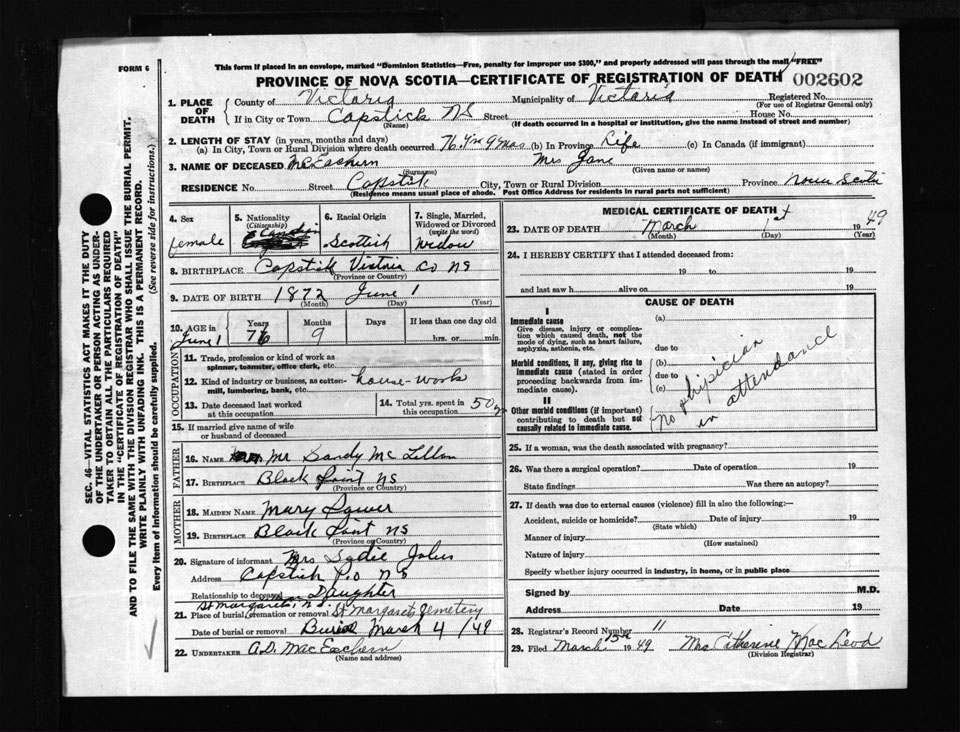 FORM 6
This form if placed in an envelope, marked "Dominion Statistics—Free, penalty for improper use $300," and properly addressed will pass through the mail "FREE"
PROVINCE OF NOVA SCOTIA—CERTIFICATE OF REGISTRATION OF DEATH 002602
1. PLACE OF DEATH
County of Victoria Municipality of Victoria Registered No.
(For use of Registrar General only)
If in City or Town Capstick NS Street House No.
(Name) (If death occurred in a hospital or institution, give the name instead of street and number)
2. LENGTH OF STAY (in years, months and days)
(a) In City, Town or Rural Division where death occurred 76 yrs 9 mos (b) In Province Life (c) In Canada (if immigrant)
3. NAME OF DECEASED McEachern Mrs Jane
(Surname) (Given name or names)
RESIDENCE No. Street Capstick City, Town or Rural Division Province Nova Scotia
(Residence means usual place of abode. Post Office Address for residents in rural parts not sufficient)
4. Sex
female
5. Nationality
(Citizenship)
6. Racial Origin
Scottish
7. Single, Married, Widowed or Divorced
(write the word)
Widow
8. BIRTHPLACE Capstick Victoria Co NS
(Province or Country)
9. DATE OF BIRTH 1872 June 1
(Month) (Day) (Year)
10. AGE in Years Months Days If less than one day old
June 1 76 9 hrs. or min.
OCCUPATION
11. Trade, profession or kind of work as spinner, teamster, office clerk, etc.
12. Kind of industry or business, as cotton-mill, lumbering, bank, etc. house-work
13. Date deceased last worked at this occupation
14. Total yrs. spent in this occupation 50 yrs
15. If married give name of wife or husband of deceased
FATHER
16. Name Mr Sandy Mc Lellan
17. Birthplace Black Point NS
(Province or Country)
MOTHER
18. Maiden Name Mary
19. Birthplace Black Point NS
(Province or Country)
20. Signature of informant Mrs Sadie
Address Capstick P.O NS
Relationship to deceased Daughter
St Margarets, N.S.
21. Place of burial, cremation or removal St Margarets Cemetery
Date of burial or removal Buried March 4 /49
22. UNDERTAKER A.D. MacEachern
(Name and address)
MEDICAL CERTIFICATE OF DEATH
23. DATE OF DEATH March 1st 1949
(Month) (Day) (Year)
24. I HEREBY CERTIFY that I attended deceased from:
19 to 19
and last saw h alive on 19
CAUSE OF DEATH
I
Immediate cause (a)
Give disease, injury or complication which caused death, not the mode of dying, such as heart failure, asphyxia, asthenia, etc.
due to
Morbid conditions, if any, giving rise to immediate cause (stated in order proceeding backwards from immediate cause).
(b)
due to
(c)
II
Other morbid conditions (if important) contributing to death but not causally related to immediate cause.
no phisician
in attendance
25. If a woman, was the death associated with pregnancy?
26. Was there a surgical operation? Date of operation 19
State findings Was there an autopsy?
27. If death was due to external causes (violence) fill in also the following:—
Accident, suicide or homicide? Date of injury 19
(State which)
Manner of injury
(How sustained)
Nature of injury
Specify whether injury occurred in industry, in home, or in public place
Signed by M.D.
Address Date 19
28. Registrar's Record Number 11
29. Filed March 15th 1949 Mrs Catherine MacLeod
(Division Registrar)
SEC. 46—VITAL STATISTICS ACT MAKES IT THE DUTY
OF THE UNDERTAKER OR PERSON ACTING AS UNDER-
TAKER TO OBTAIN ALL THE PARTICULARS REQUIRED
IN THE "CERTIFICATE OF REGISTRATION OF DEATH"
AND TO FILE THE SAME WITH THE DIVISION REGISTRAR WHO SHALL ISSUE THE BURIAL PERMIT.
WRITE PLAINLY WITH UNFADING INK. THIS IS A PERMANENT RECORD.
Every item of information should be carefully supplied. (See reverse side for instructions.)